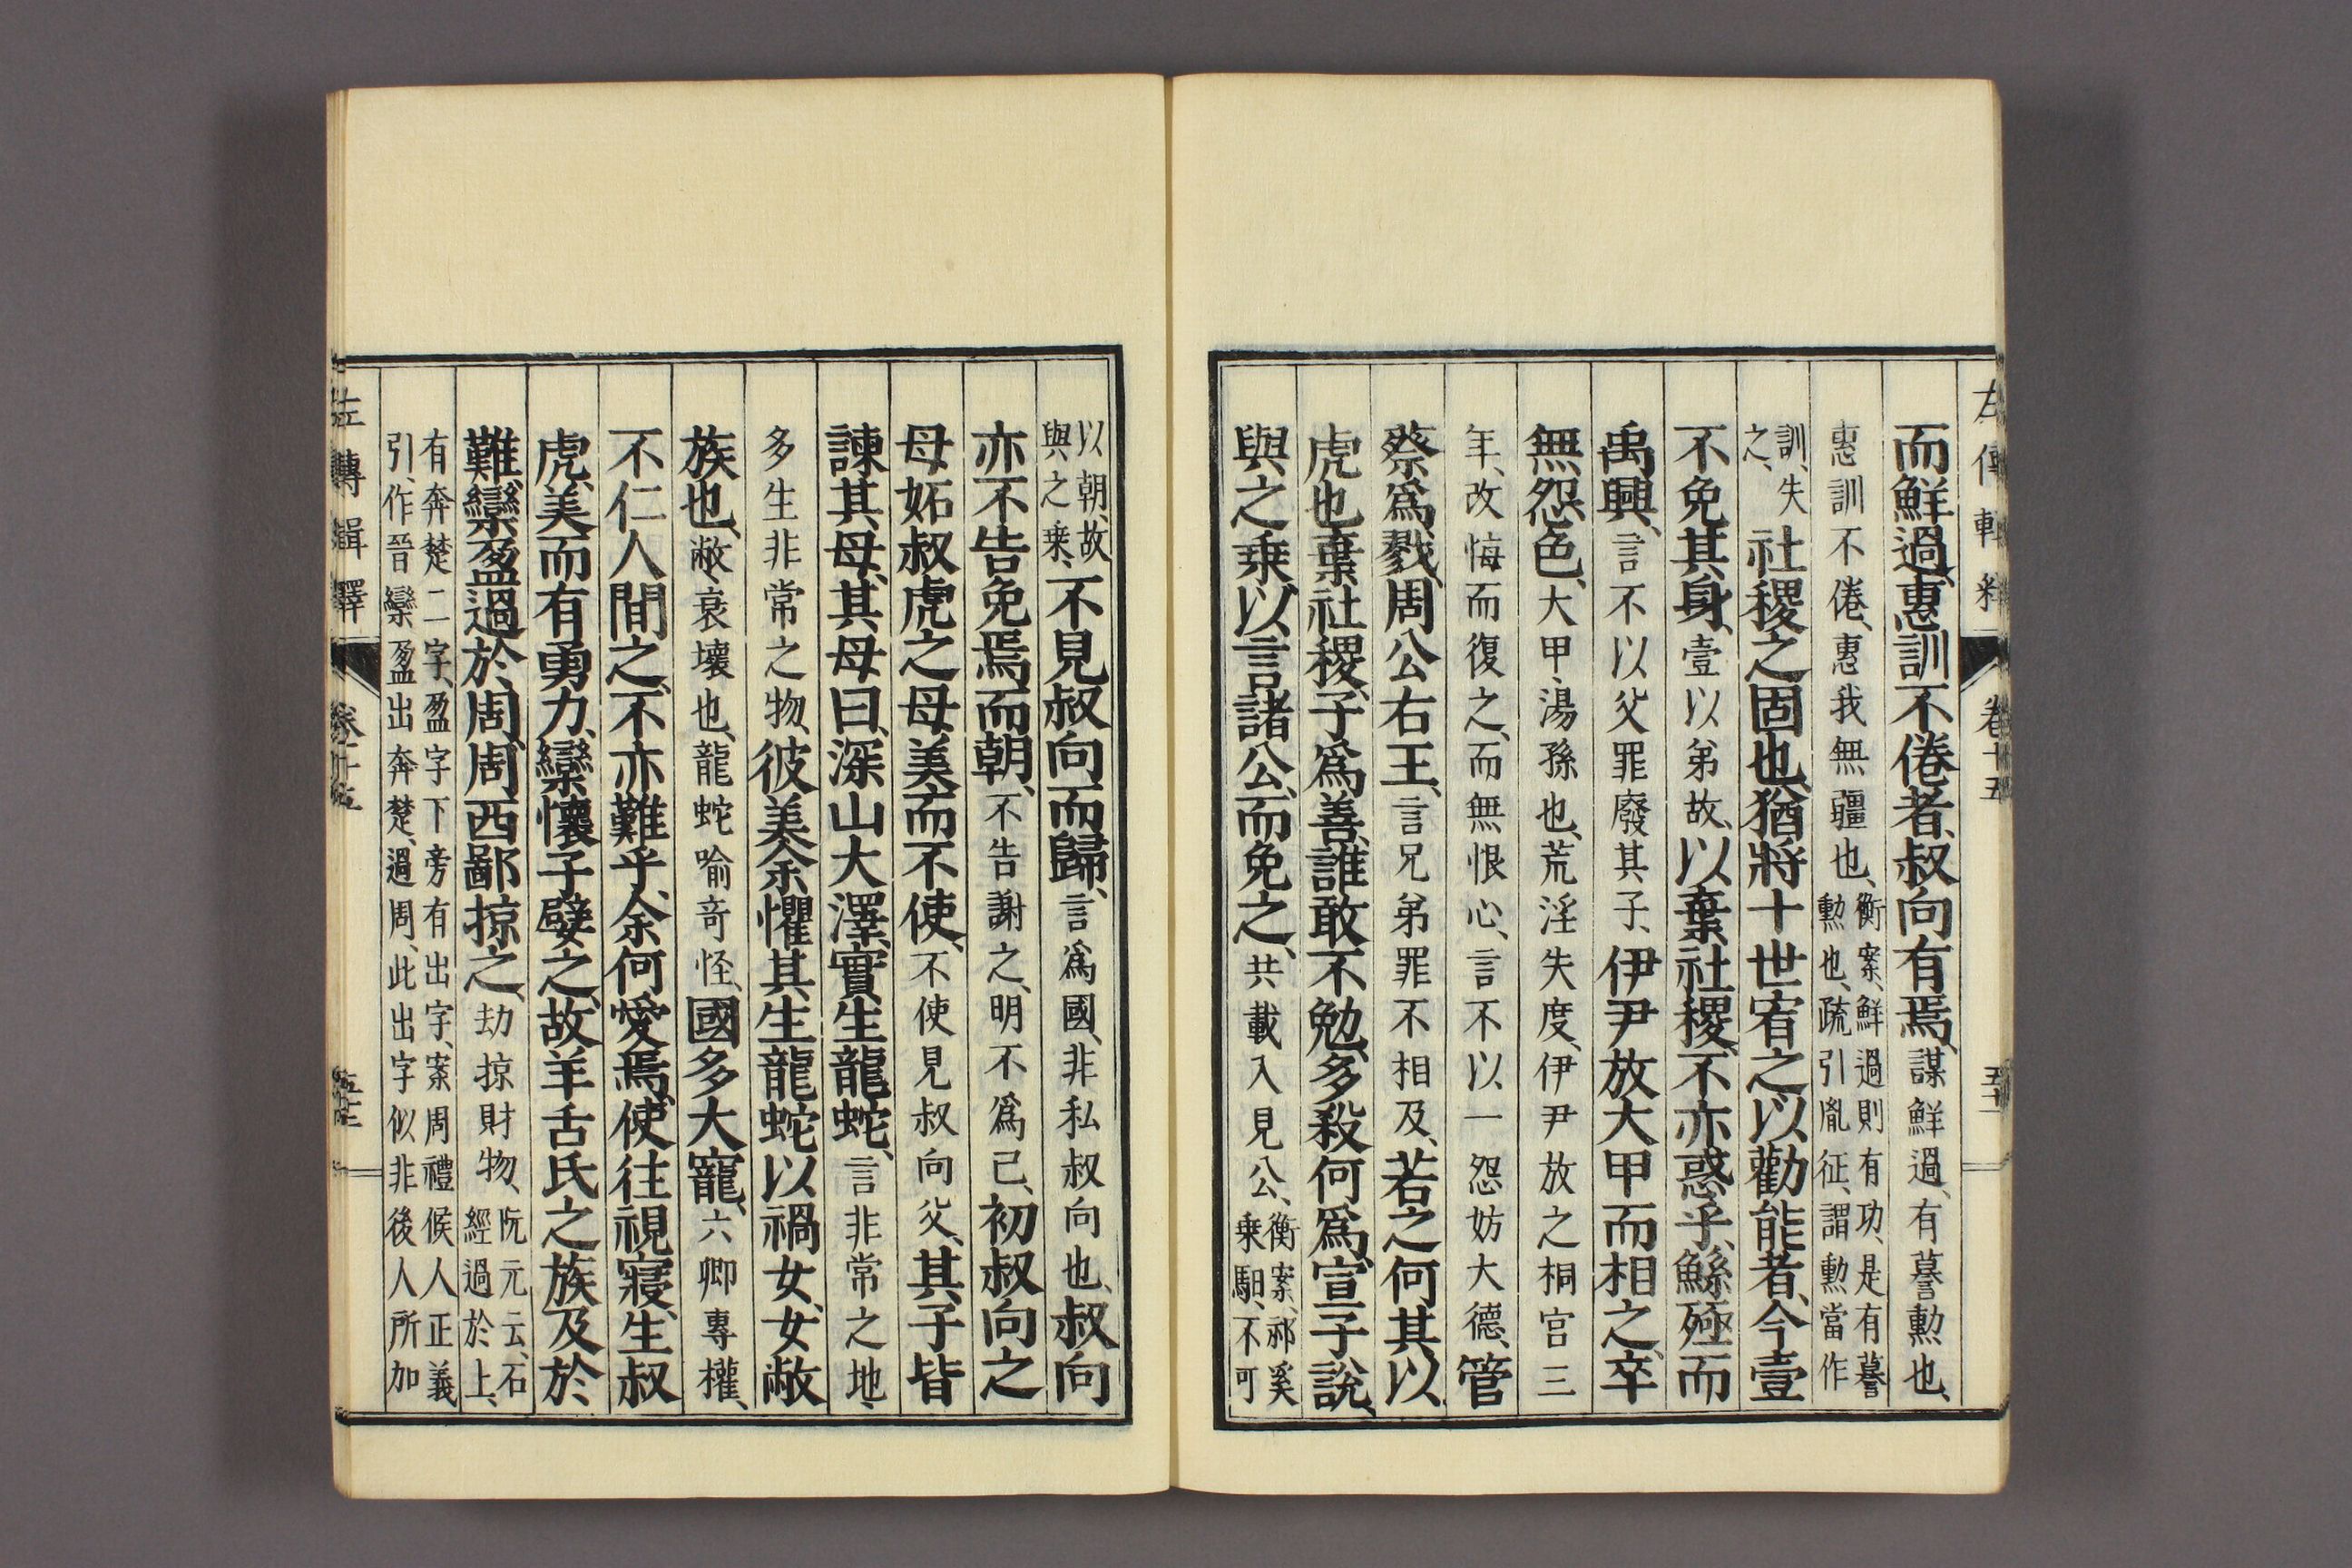 左傳輯釋 卷十五
而鮮過、惠訓不倦者、叔向有焉、謀鮮過、有謩勲也、
惠訓不倦、惠我無疆也、衡案、鮮過則有功、是有謩勲也、疏引胤征、謂勲當作
訓、失之、社稷之固也、猶將十世宥之、以勸能者、今壹
不免其身、壹以弟故、以棄社稷、不亦惑乎、鯀殛而
禹興、言不以父罪廢其子、伊尹放大甲而相之、卒
無怨色、大甲、湯孫也、荒淫失度、伊尹放之桐宮三
年、改悔而復之、而無恨心、言不以一怨妨大德、管
蔡爲戮、周公右王、言兄弟罪不相及、若之何其以
虎也棄社稷、子爲善、誰敢不勉、多殺何爲、宣子說、
與之乘、以言諸公、而免之、共載入見公、衡案、祁奚乘馹、不可
以朝、故與之乘、不見叔向而歸、言爲國、非私叔向也、叔向
亦不告免焉、而朝、不告謝之、明不爲己、初叔向之
母妬叔虎之母美、而不使、不使見叔向父、其子皆
諫其母、其母曰、深山大澤、實生龍蛇、言非常之地、
多生非常之物、彼美、余懼其生龍蛇以禍女、女敝
族也、敝、衰壞也、龍蛇喻奇怪、國多大寵、六卿專權、
不仁人閒之、不亦難乎、余何愛焉、使往視寢、生叔
虎、美而有勇力、欒懷子嬖之、故羊舌氏之族及於
難、欒盈過於周、周西鄙掠之、劫掠財物、阮元云、石經過於上、
有奔楚二字、盈字下旁有出字、案周禮候人正義引、作晉欒盈出奔楚、過周、此出字似非後人所加
左傳輯釋 卷十五